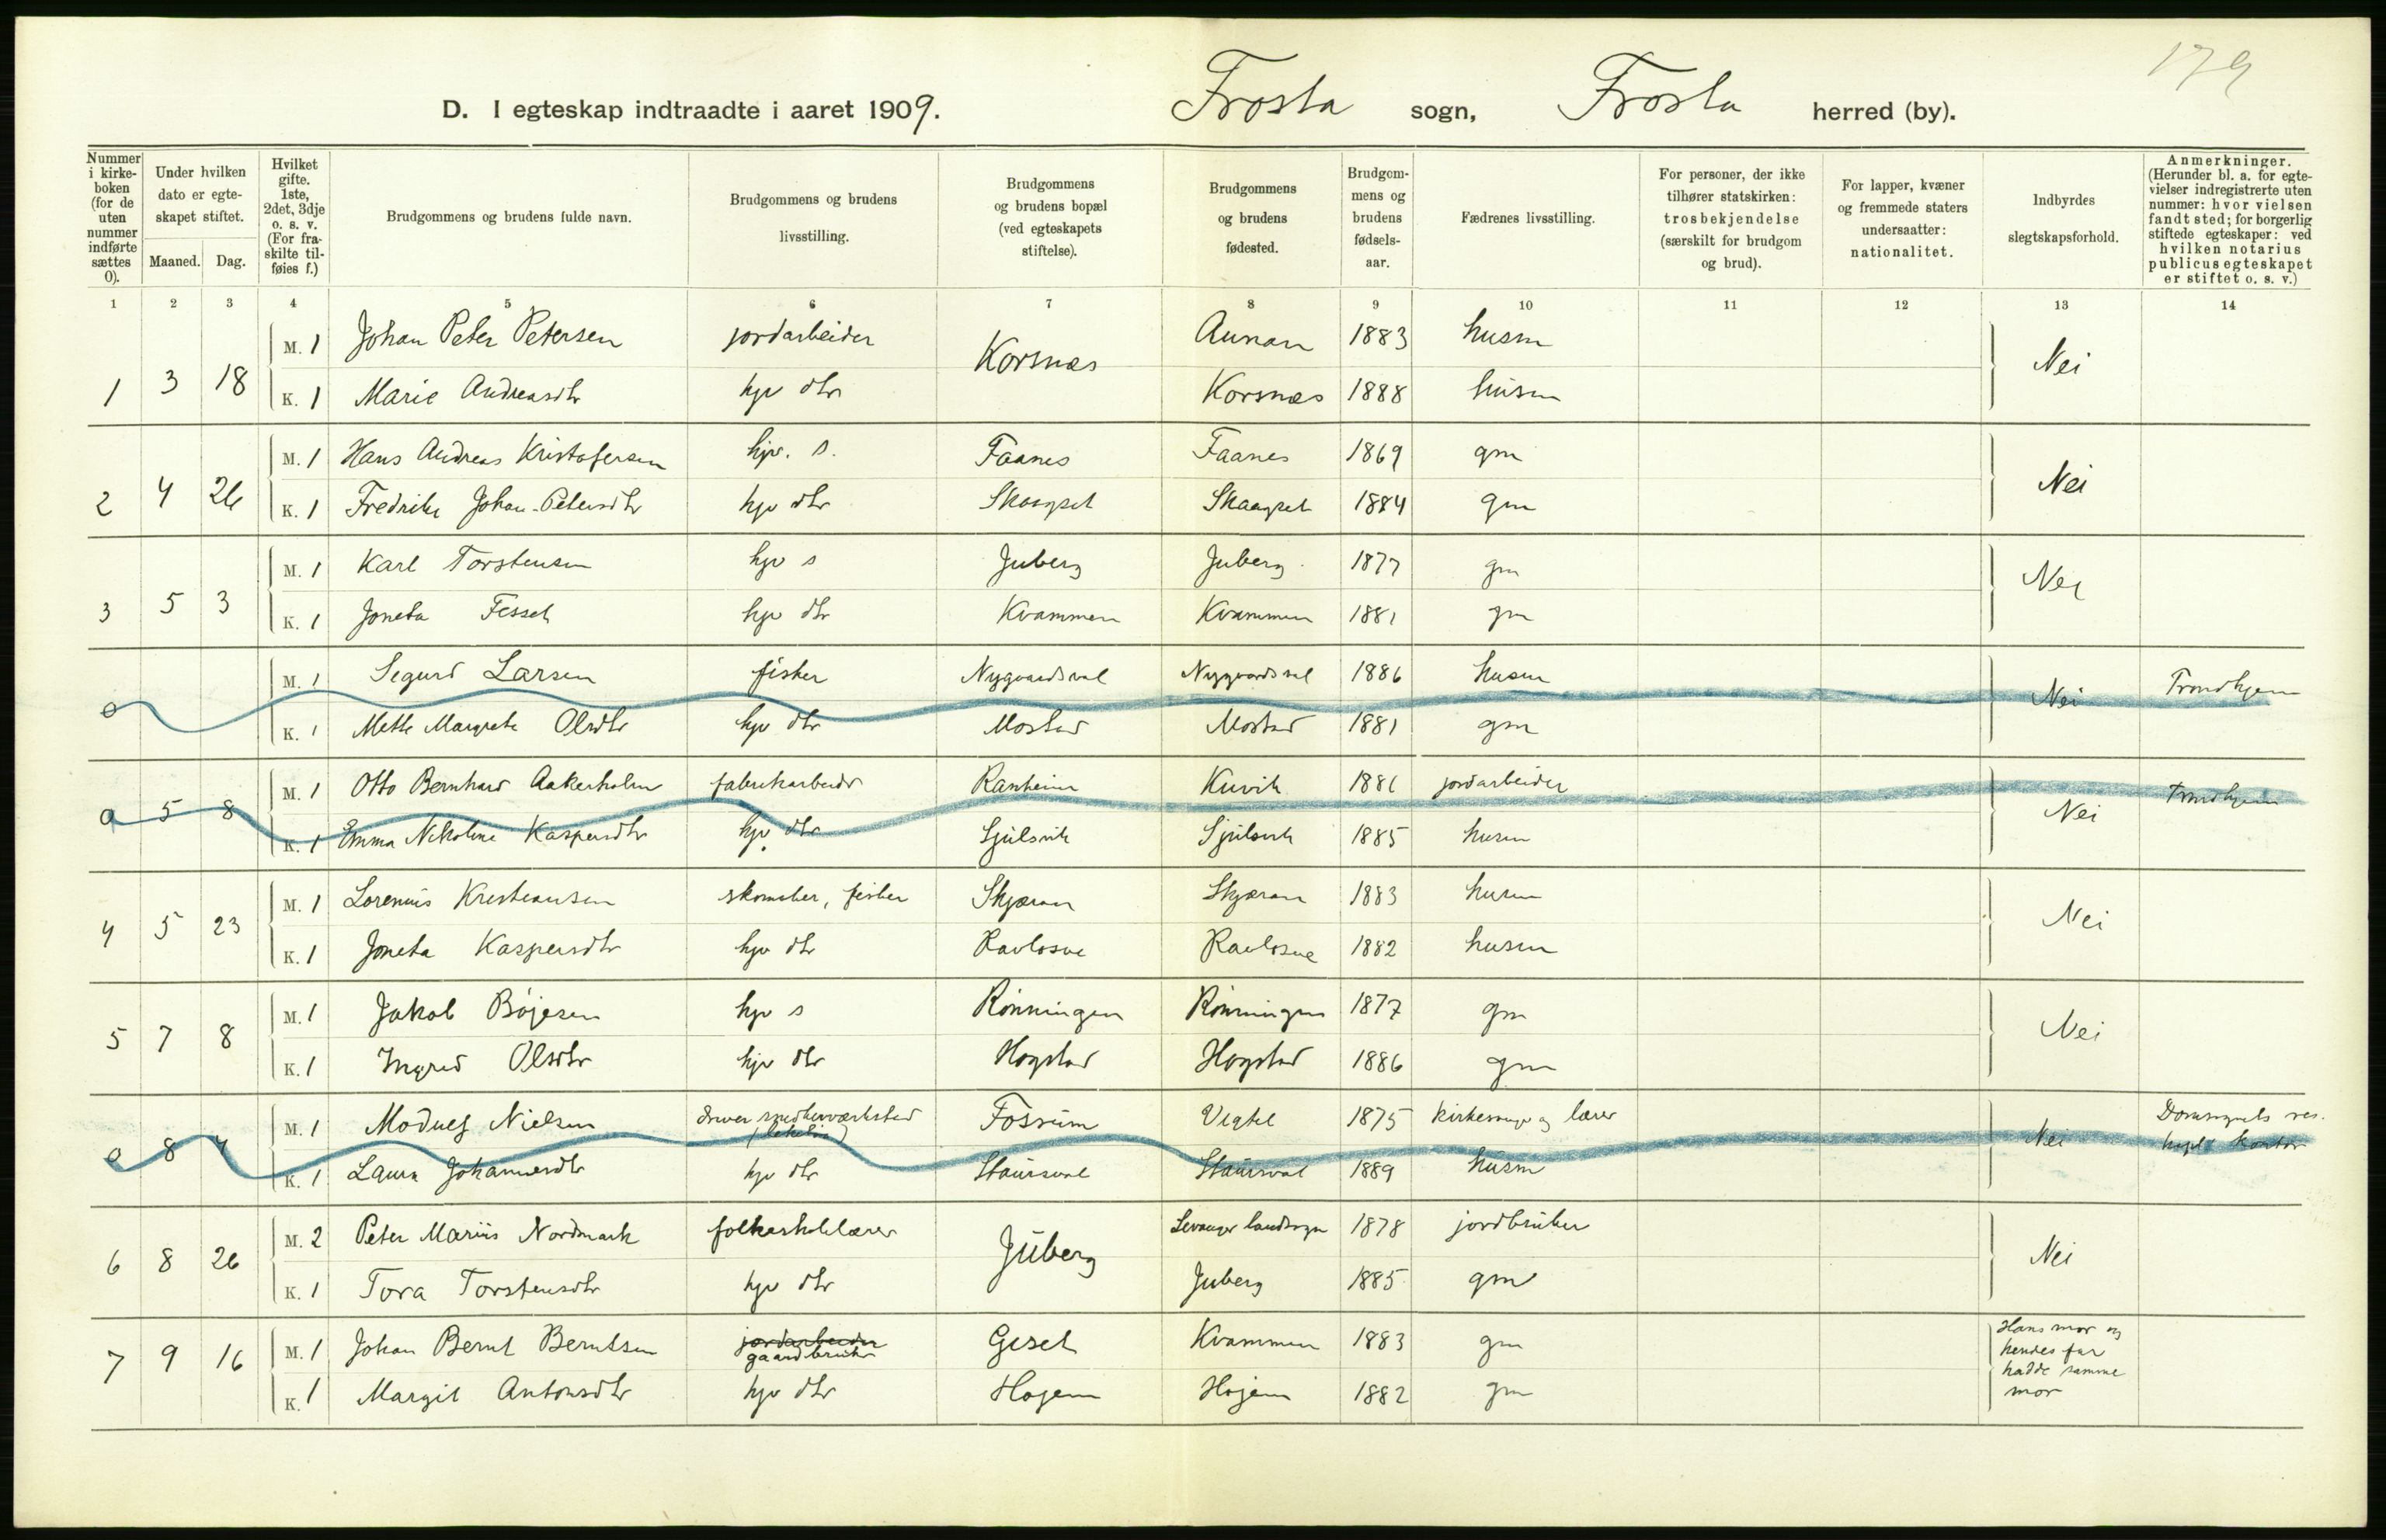 179
D. I egteskap indtraadte i aaret 1909. Frosta sogn, Frosta herred (by).
Nummer i kirke-boken (for de uten nummer indførte sættes 0).
Under hvilken dato er egte-skapet stiftet.
Maaned. Dag.
Hvilket gifte. 1ste, 2det, 3dje o. s. v. (For fra-skilte til-føies f.)
Brudgommens og brudens fulde navn.
Brudgommens og brudens livsstilling.
Brudgommens og brudens bopæl (ved egteskapets stiftelse).
Brudgommens og brudens fødested.
Brudgom-mens og brudens fødsels-aar.
Fædrenes livsstilling.
For personer, der ikke tilhører statskirken: trosbekjendelse (særskilt for brudgom og brud).
For lapper, kvæner og fremmede staters undersaatter: nationalitet.
Indbyrdes slegtskapsforhold.
Anmerkninger. (Herunder bl. a. for egte-vielser indregistrerte uten nummer: hvor vielsen fandt sted; for borgerlig stiftede egteskaper: ved hvilken notarius publicus egteskapet er stiftet o. s. v.)
1 2 3 4 5 6 7 8 9 10 11 12 13 14
1 3 18 M. 1 Johan Peter Petersen jordarbeider Korsnæs Aunan 1883 husm Nei
K. 1 Marie Andreasdtr hjv dtr Korsnæs 1888 husm
2 4 26 M. 1 Hans Andreas Kristofersen hjv. s. Faanes Faanes 1869 gm Nei
K. 1 Fredrike Johan-Petersdtr hjv dtr Skaagset Skaagset 1884 gm
3 5 3 M. 1 Karl Torstensen hjv s Juberg Juberg 1877 gm Nei
K. 1 Joneta Fesset hjv dtr Kvammen Kvammen 1881 gm
0 M. 1 Sigurd Larsen fisker Nygaardsval Nygaardsval 1886 husm Nei Trondhjem
K. 1 Mette Margrete Olsdtr hjv dtr Mostad Mostad 1881 gm
0 5 8 M. 1 Otto Bernhard Aakerholm fabrikarbeider Ranheim Kuvik 1881 jordarbeider Nei Trondhjem
K. 1 Emma Nikoline Kaspersdtr hjv dtr Sjulsvik Sjulsvik 1885 husm
4 5 23 M. 1 Lorentius Kristiansen skomaker, fisker Skjæran Skjæran 1883 husm Nei
K. 1 Joneta Kaspersdtr hjv dtr Ravlosve Ravlosve 1882 husm
5 7 8 M. 1 Jakob Böjesen hjv s Rönningen Rönningen 1877 gm Nei
K. 1 Ingrid Olsdtr hjv dtr Hogstad Hogstad 1886 gm
0 8 7 M. 1 Moduef Nielsen driver snedkerverksted Fossum Vigtil 1875 kirkesanger og lærer Nei Domsognets res.
K. 1 Laura Johannesdtr hjv dtr Staursval Staursval 1889 husm kapl. kontor
6 8 26 M. 2 Peter Marius Nordmark folkeskolelærer Juberg Levanger landsogn 1878 jordbruker Nei
K. 1 Tora Torstensdtr hjv dtr Juberg 1885 gm
7 9 16 M. 1 Johan Bernt Berntsen jordarbeider gaardbruker Geset Kvammen 1883 gm Hans mor og hendes far hadde samme mor
K. 1 Margit Antonsdtr hjv dtr Hojem Hojem 1882 gm